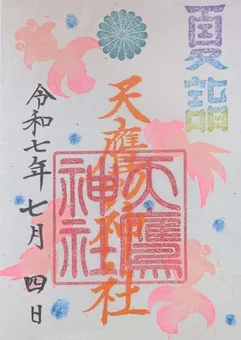 夏詣
天鷹神社
天鷹
神社
令和七年七月四日